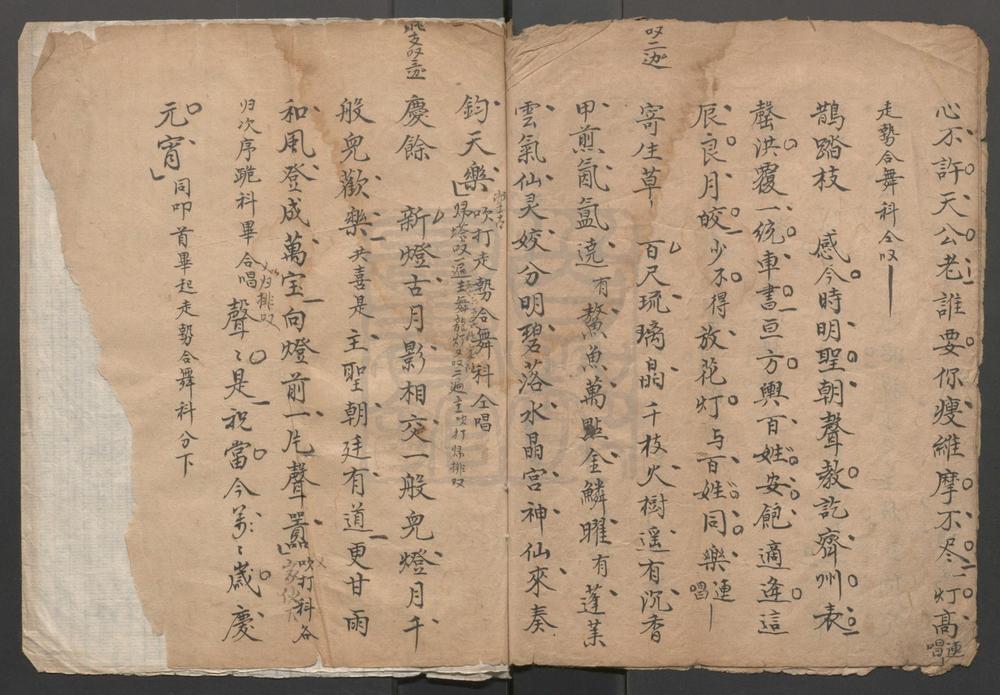 心不許天公老誰要你瘦維摩不尽灯高連唱
走勢合舞科仝吹
鵲踏枝　感今時明聖朝聲教訖齊州表
罄洪覆一统車書亘方輿百姓安飽適逢這
辰良月皎少不得放花灯与百姓同樂連唱
吹二迯
寄生草　百尺琉璃晶千枝火樹遥有沉香
甲煎氤氲遶有鰲魚萬點金鱗曜有蓬莱
雲氣仙灵姣分明碧落水晶宮神仙來奏
鈞天樂吹打走勢合舞科仝唱
慶餘　新燈古月影相交一般皃燈月千
般皃歡樂共喜是主聖朝廷有道更甘雨
和風登成萬宝向燈前一片聲囂吹打科各
归次序跪科畢合唱聲〻是祝當今萬〻歲慶
元宵同叩首畢起走勢合舞科分下